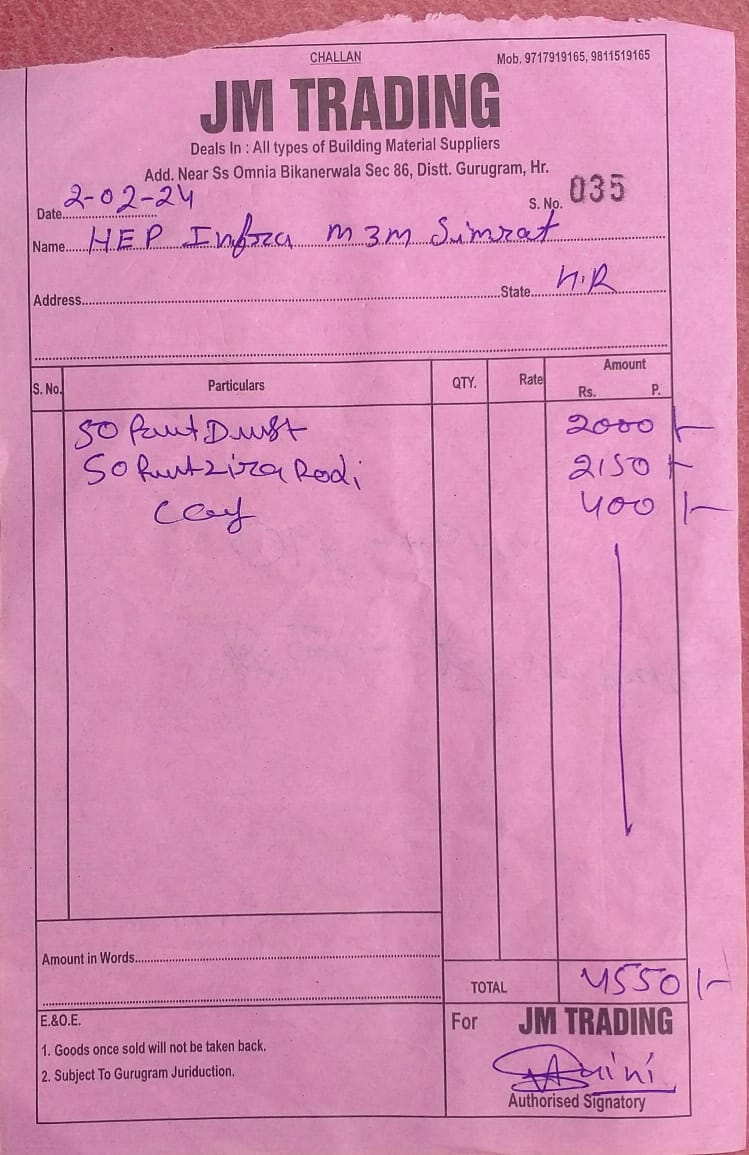 CHALLAN Mob. 9717919165, 9811519165
JM TRADING
Deals In : All types of Building Material Suppliers
Add. Near Ss Omnia Bikanerwala Sec 86, Distt. Gurugram, Hr.
Date 2-02-24 S. No. 035
Name HEP Infra M3M Simrat
Address State H.R
S. No. Particulars QTY. Rate Amount
Rs. P.
50 Dust 2000/-
50 Zira Rodi 2150/-
400/-
Amount in Words
TOTAL 4550/-
E.&O.E. For JM TRADING
1. Goods once sold will not be taken back.
2. Subject To Gurugram Juriduction.
Authorised Signatory